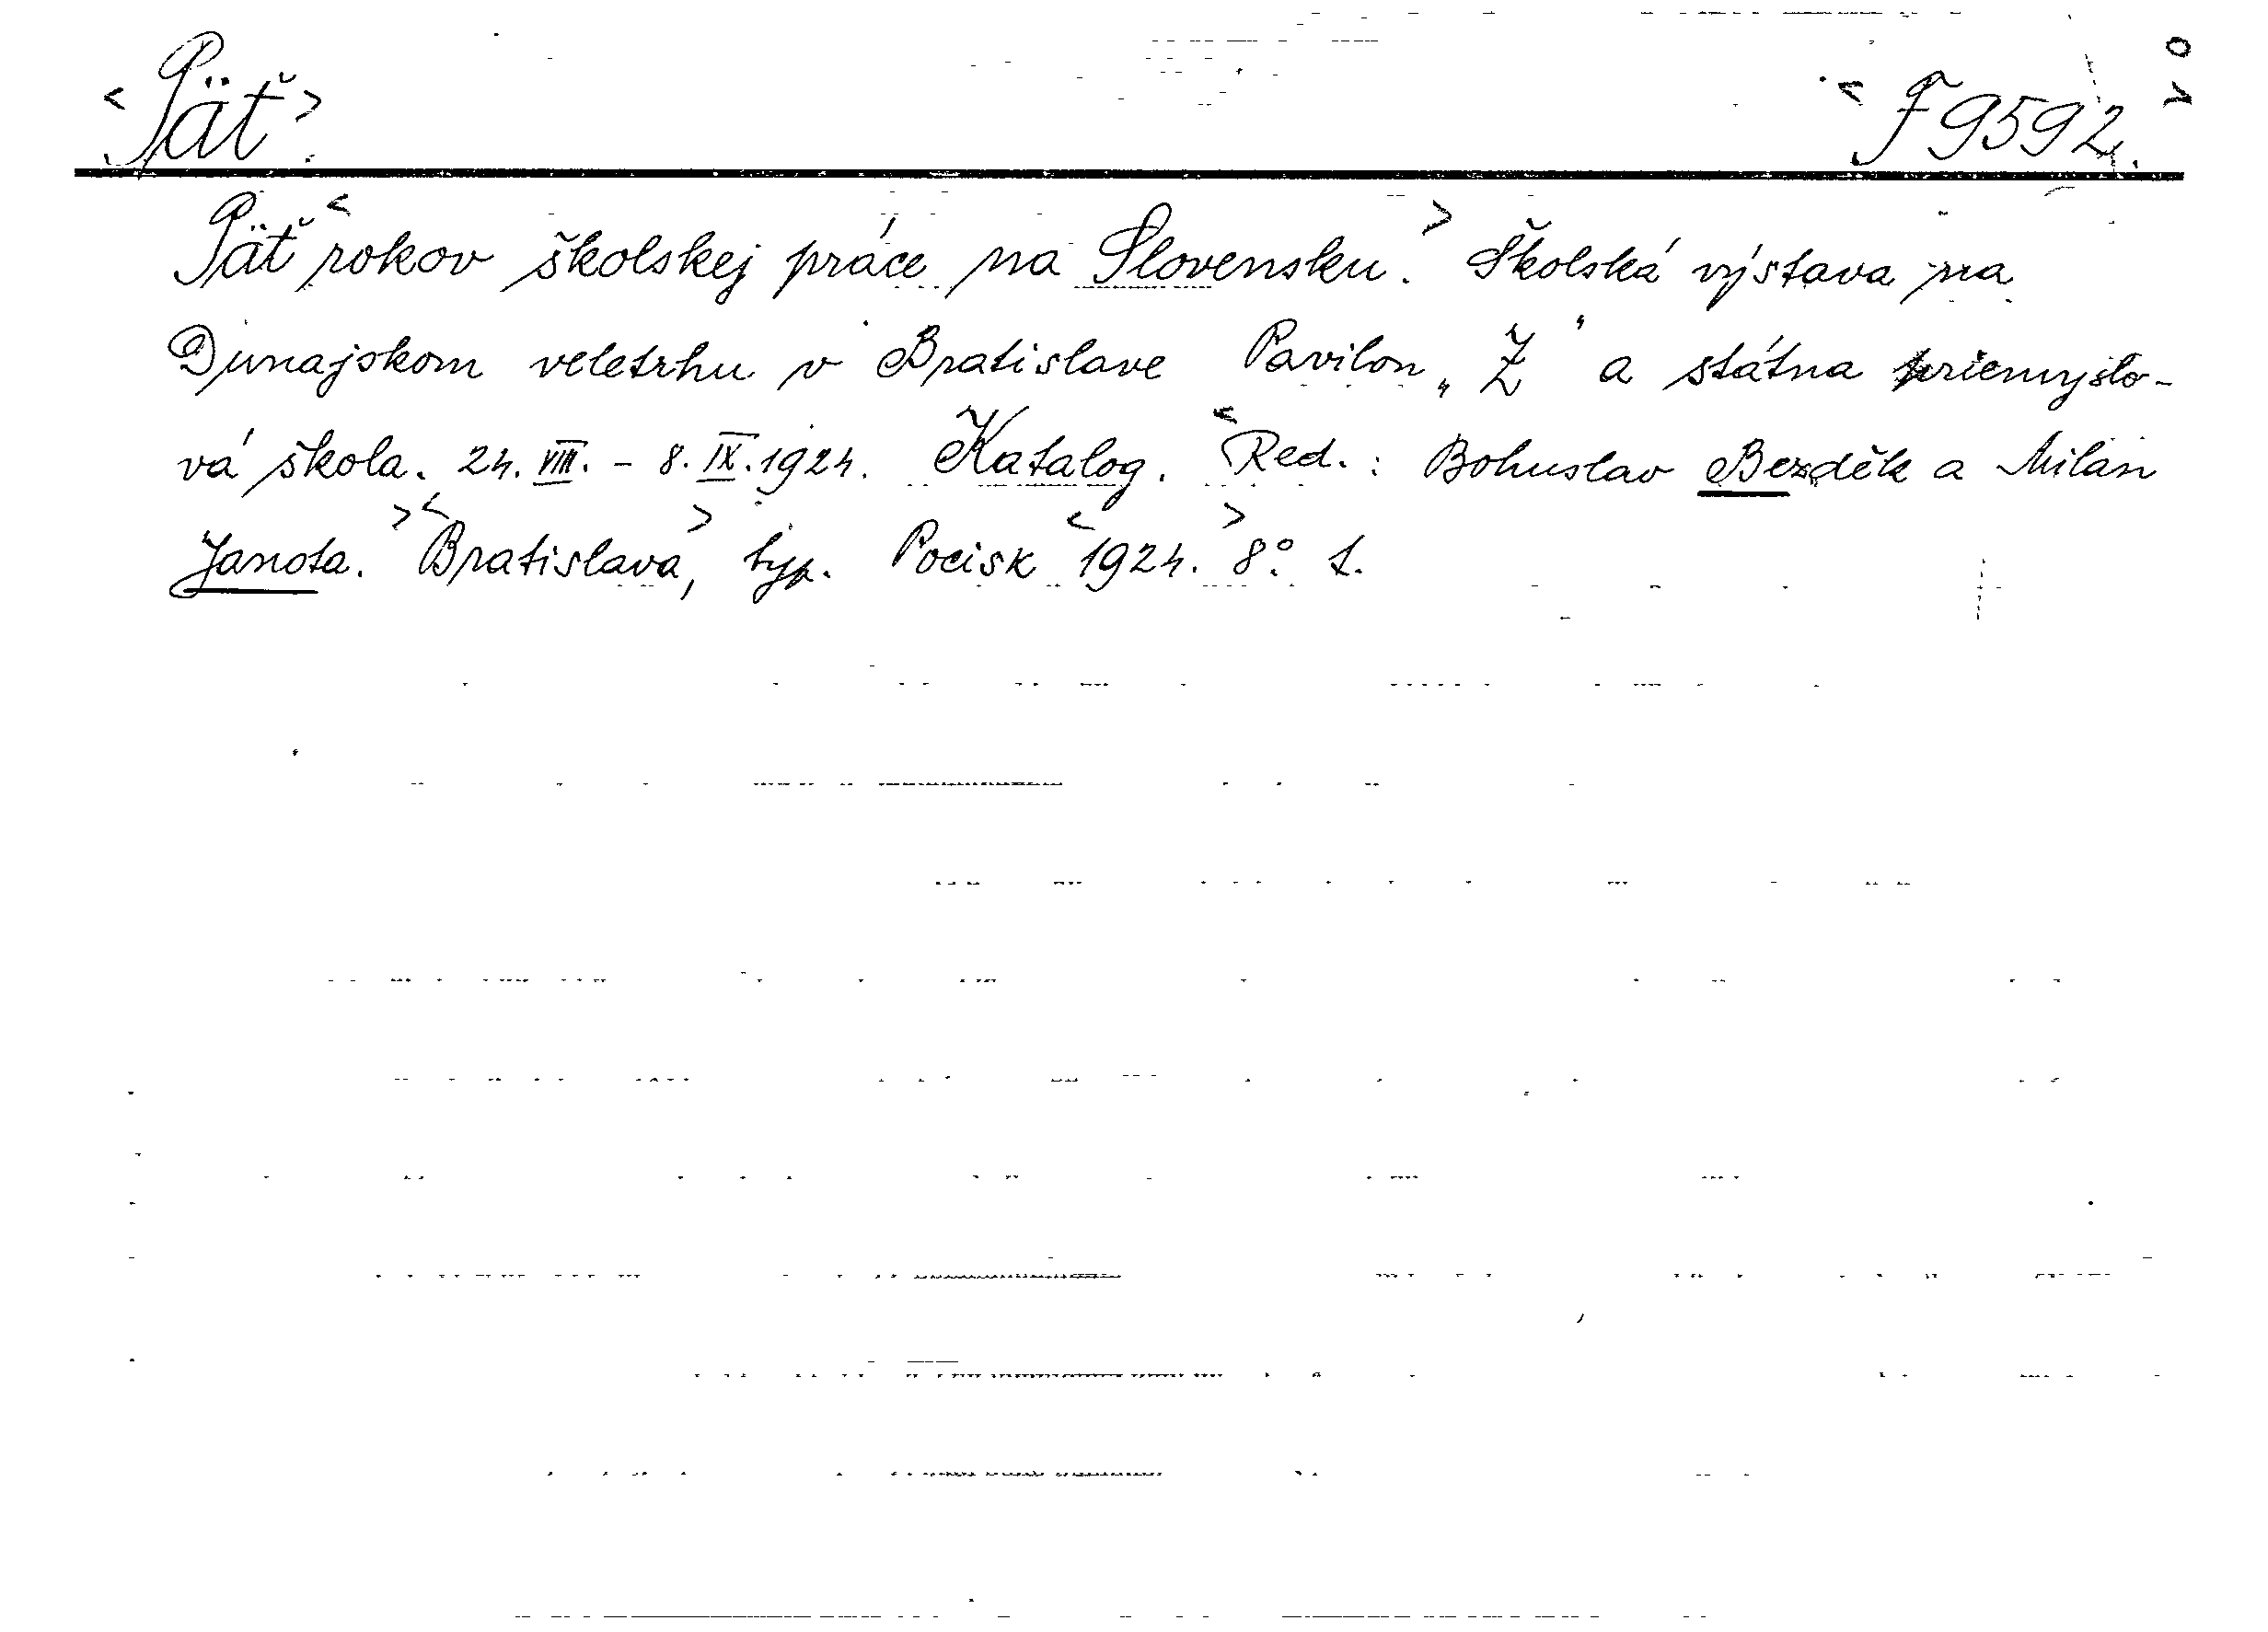 <Päť> <F 9592.> o
Päť <rokov školskej práce na Slovensku.> Školská výstava na
Dunajskom veletrhu v Bratislave Pavilon „Ž“ a státna priemyslo-
vá škola. 24. VIII. - 8. IX. 1924. Katalog. <Red.: Bohuslav Bezděk a Milan
Janota.> <Bratislava>, typ. Pocisk <1924.> 8°. 1.